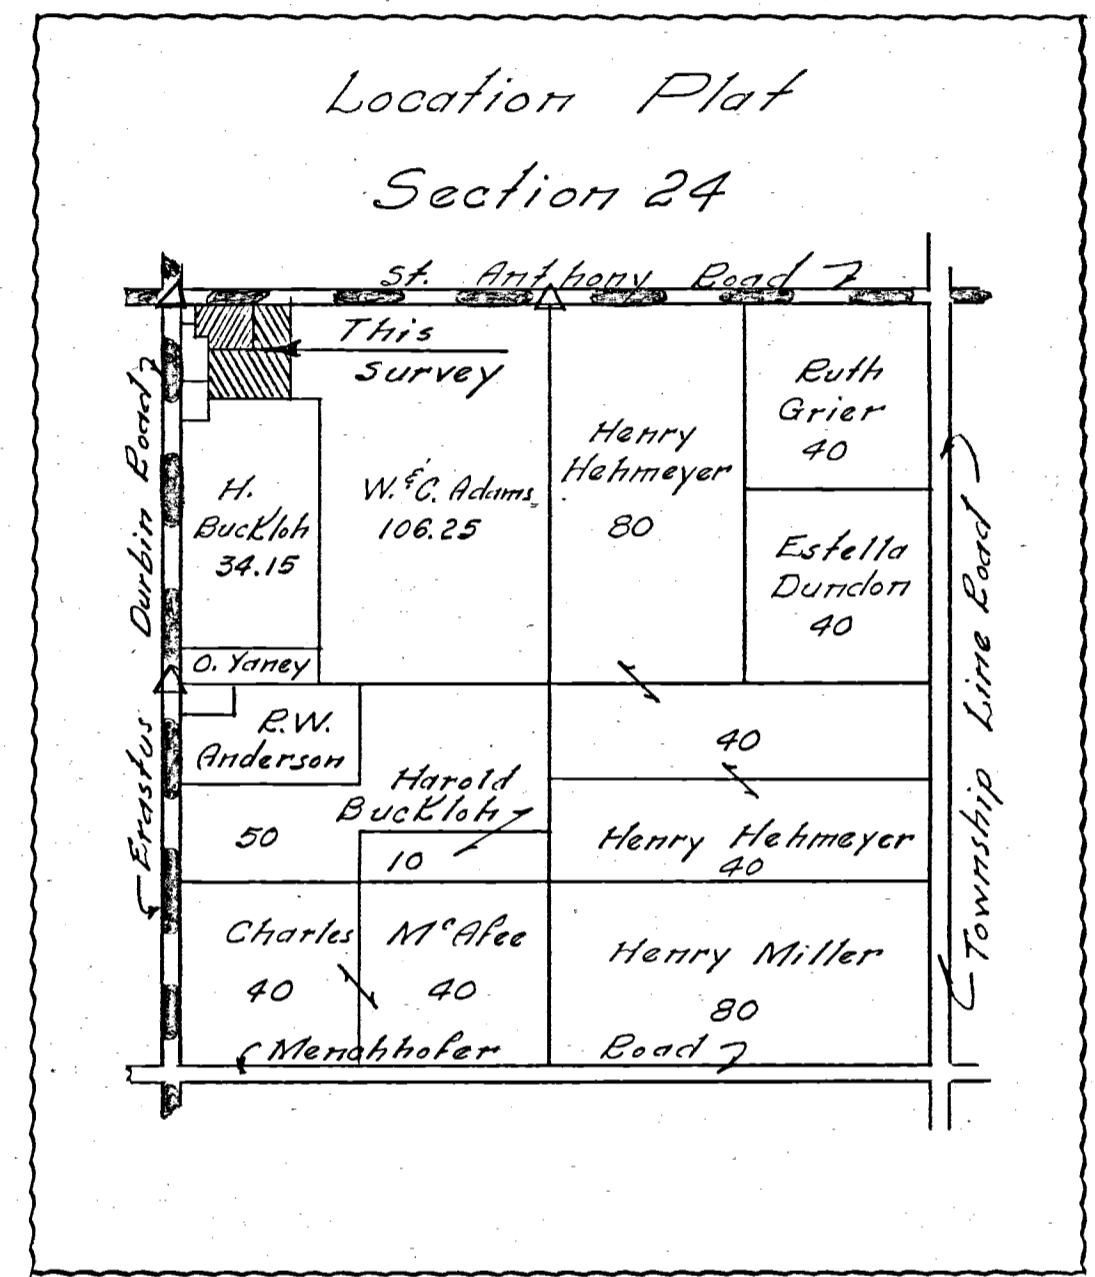 Location Plat
Section 24
St. Anthony Road
This
Survey
Erastus Durbin Road
H.
Buckloh
34.15
W. & C. Adams
106.25
Henry
Hehmeyer
80
Ruth
Grier
40
Estella
Dundon
40
Township Line Road
O. Yaney
R.W.
Anderson
50
Harold
Buckloh
10
40
Henry Hehmeyer
40
Charles McAfee
40
40
Henry Miller
80
Menchhofer Road